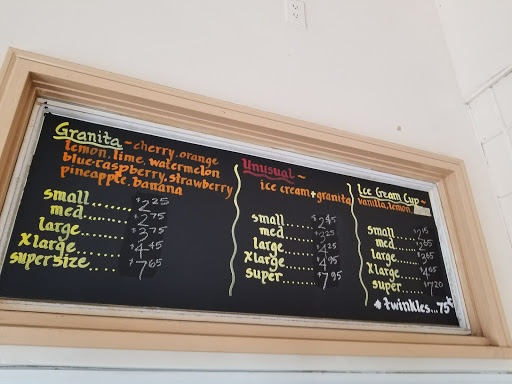 Granita ~ cherry, orange
lemon, lime, watermelon
blue-raspberry, strawberry
pineapple, banana
small........ $2.25
med........ $2.75
large........ $3.75
xlarge....... $4.45
supersize..... $7.65
Unusual ~
ice cream + granita
small...... $2.45
med......
large......
xlarge...... $4.95
super...... $7.95
Ice Cream Cup ~
vanilla, lemon
small......
med......
large......
xlarge......
super...... $7.20
twinkles...75¢